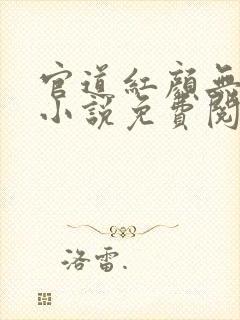 官道紅顏無
小說免費閱
洛雷.